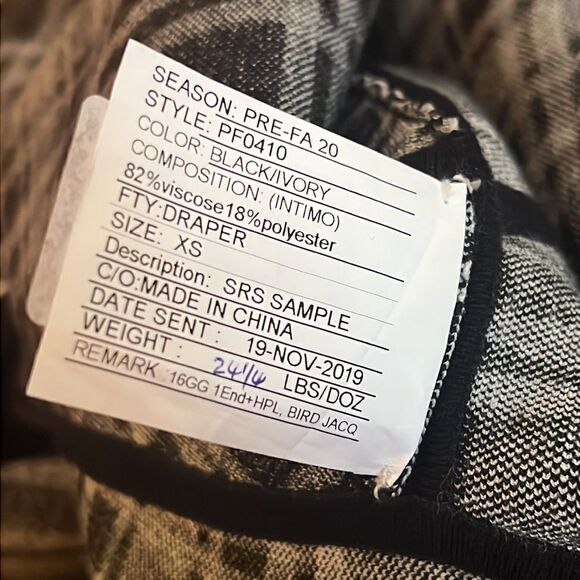 SEASON: PRE-FA 20
STYLE: PF0410
COLOR: BLACK/IVORY
COMPOSITION: (INTIMO)
82%viscose18%polyester
FTY:DRAPER
SIZE: XS
Description: SRS SAMPLE
C/O:MADE IN CHINA
DATE SENT : 19-NOV-2019
WEIGHT : 24 1/4 LBS/DOZ
REMARK :16GG 1End+HPL, BIRD JACQ